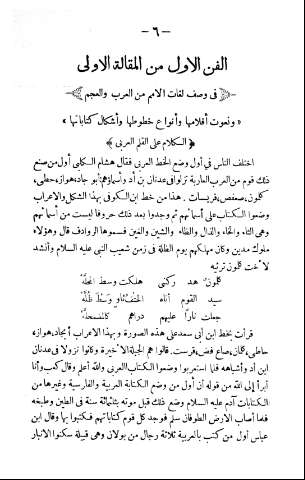 — ٦ —
الفن الاول من المقالة الاولى
﴿ فى وصف لغات الامم من العرب والعجم ﴾
« ونعوت أقلامها وأنواع خطوطها وأشكال كتاباتها »
﴿ الكلام على القلم العربى ﴾
اختلف الناس في أول من وضع الخط العربى فقال هشام الكلبى أول من صنع
ذلك قوم من العرب العاربة نزلوا فى عدنان بن أد وأسماؤهم أبو جاد، هواز، حطى،
كلمون، صعفص، قريسات . هذا من خط ابن الكوفى بهذا الشكل والاعراب
وضعوا الكتاب على أسمائهم ثم وجدوا بعد ذلك حروفا ليست من أسمائهم
وهى الثاء والخاء والذال والظاء والشين والغين فسموها الروادف قال وهؤلاء
ملوك مدين وكان مهلكهم يوم الظلة فى زمن شعيب النبى عليه السلام وأنشد
لأخت كلمون ترثيه
كلمون هد ركنى هلكه وسط المحله
سيد القوم أتاه الحتف ثاو وسط ظله
جعلت نارا عليهم دارهم كالمضمحله
قرأت بخط ابن أبى سعد على هذه الصورة وبهذا الاعراب أبجاد، هواز،
حاطى، كلمان، صاع فض، قرست. قالوا هم الجبلة الاخيرة وكانوا نزولا فى عدنان
ابن أد وأشباهه فلما استعربوا وضعوا الكتاب العربى والله أعلم وقال كعب وأنا
أبرأ إلى الله من قوله ان أول من وضع الكتابة العربية والفارسية وغيرها من
الكتابات آدم عليه السلام وضع ذلك قبل موته بثلثمائة سنة فى الطين وطبخه
فلما أصاب الارض الطوفان سلم فوجد كل قوم كتاباتهم فكتبوا بها وقال ابن
عباس أول من كتب بالعربية ثلاثة رجال من بولان وهى قبيلة سكنوا الانبار